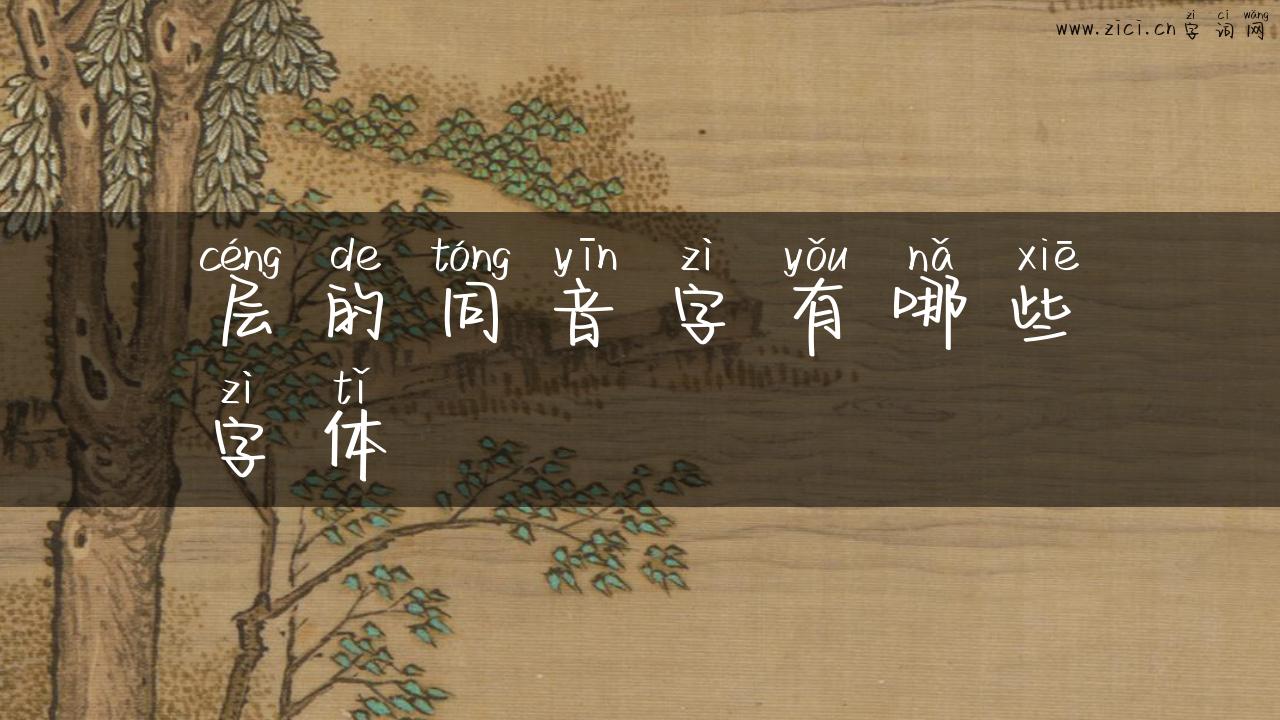 zì cí wǎng
www.zici.cn 字词网
céng de tóng yīn zì yǒu nǎ xiē
层的同音字有哪些
zì tǐ
字体